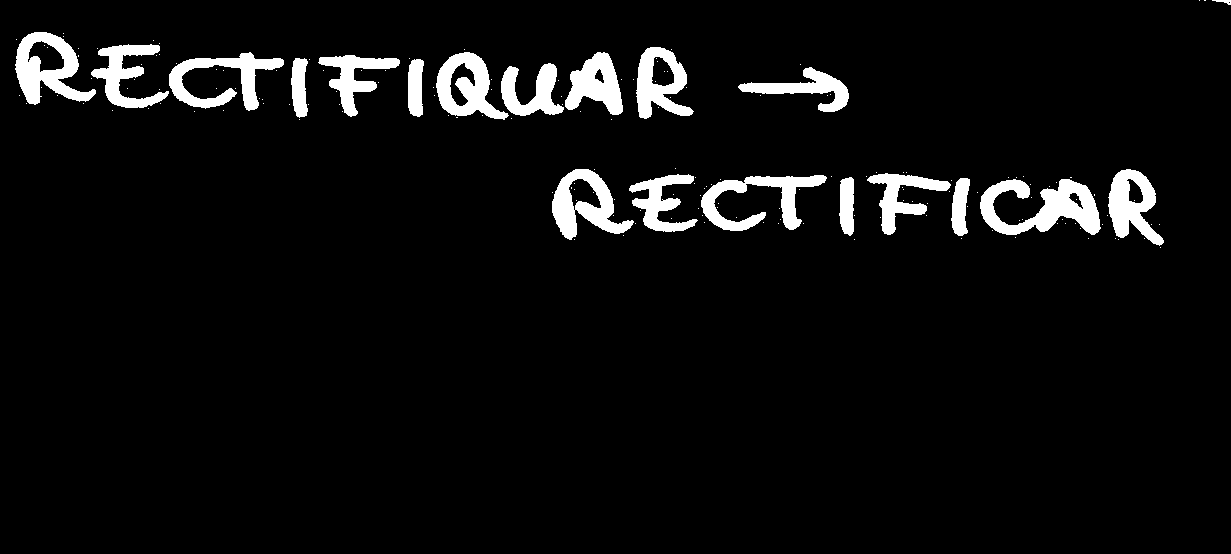 RECTIFIQUAR →
RECTIFICAR